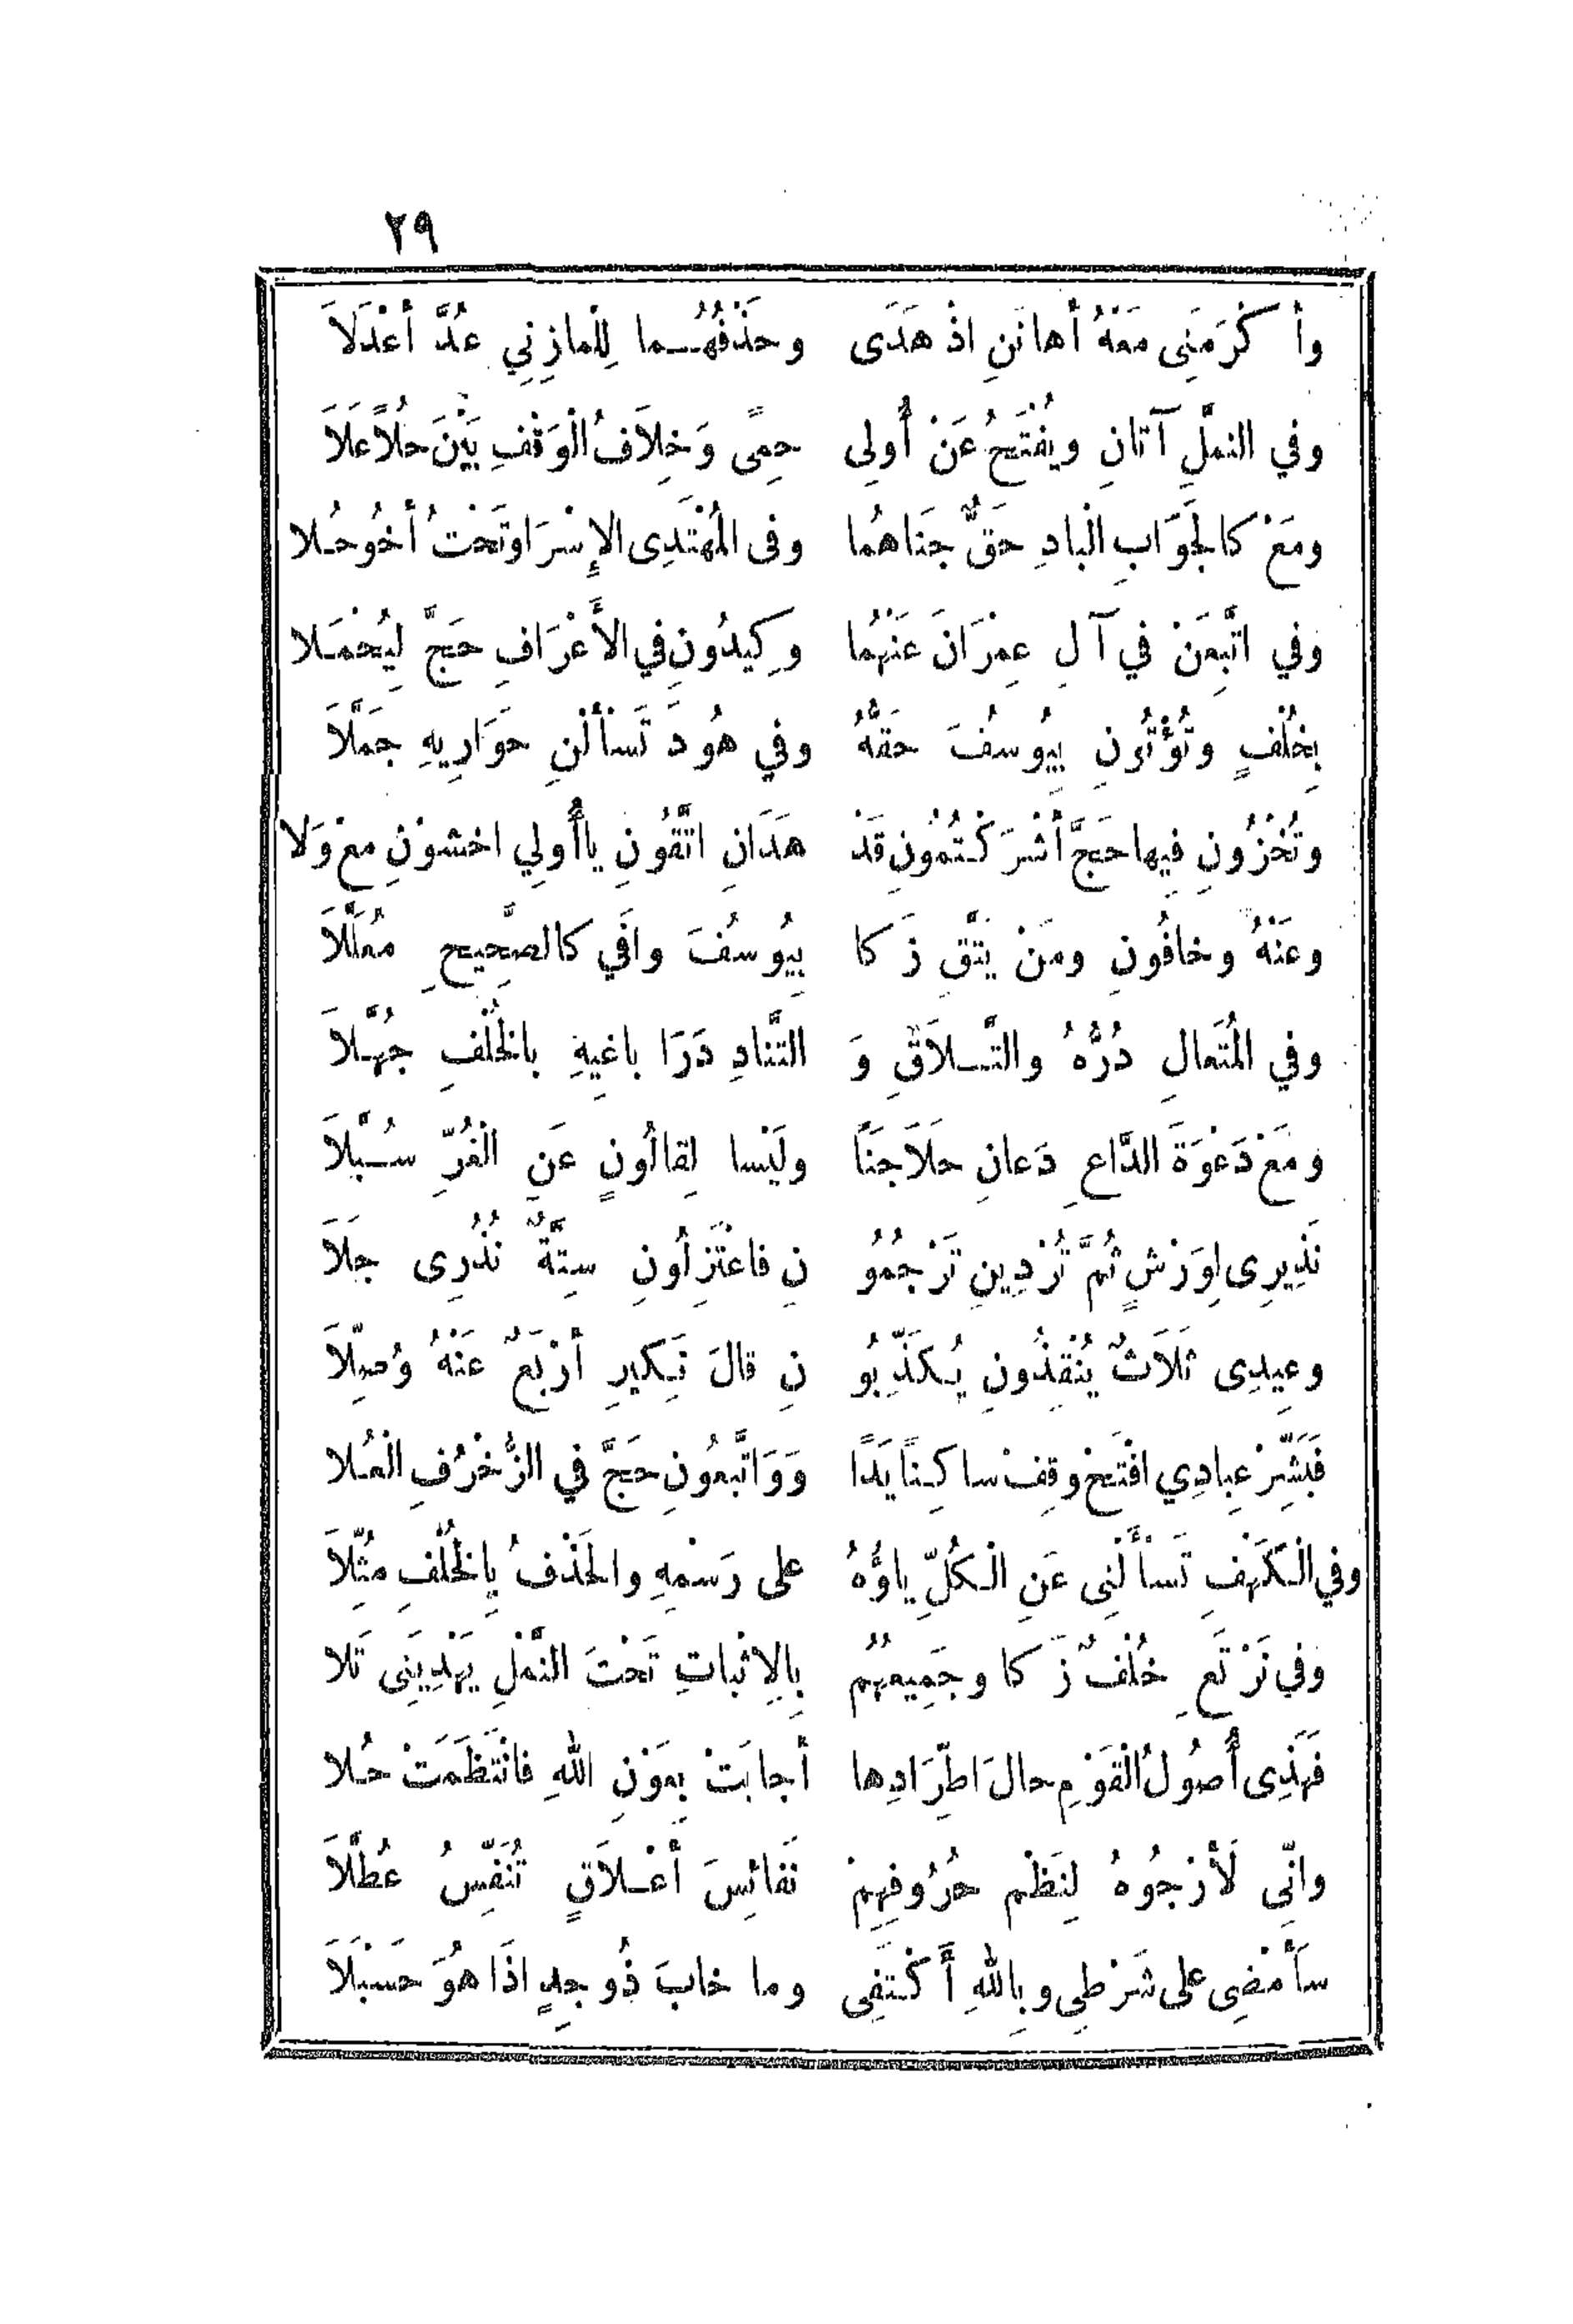 ٢٩
وأكْرَمَنِى مَعَهُ أهانَنِ اذْ هَدَى وحَذْفُهُما لِلْمازِنِي عُدَّ أعْدَلاَ
وفي النملِ آتانِ ويُفْتَحُ عَنْ أُولِى حِمًى وَخِلاَفُ الْوَقْفِ بَيْنَ حُلاً عَلاَ
ومَعْ كالجَوَابِ الْبادِ حَقٌّ جَنَاهُما وفى المُهْتَدِى الإِسْرَا وتَحْتُ أخُو حُلا
وفي اتَّبِعَنْ في آلِ عِمْرَانَ عَنْهُما وكِيدُونِ في الأَعْرَافِ حَجَّ لِيُحْمَلا
بِخُلْفٍ وتُؤْتُونِ بِيُوسُفَ حَقُّهُ وفي هُودَ تَسْأَلْنِ حَوَارِيهِ جَمَّلاَ
وتُخْزُونِ فِيها حَجَّ أشْرَكْتُمُونِ قَدْ هَدَانِ اتَّقُونِ ياأُولِي اخشوْنِ معْ وَلا
وعَنْهُ وخافُونِ ومَنْ يَتَّقِ زَكا بِيُوسُفَ وافَي كالصَّحِيحِ مُعَلَّلاَ
وفي المُتَعالِ دُرُّهُ والتَّلاَقِ وَ التَّنادِ دَرَا باغيهِ بالخُلْفِ جُهَّلاَ
ومَعْ دَعْوَةَ الدَّاعِ دَعانِ حَلاَ جَنًا ولَيْسا لِقالُونٍ عَنِ الْغُرِّ سُبَّلاَ
نَذِيرِى لِوَرْشٍ ثُمَّ تُرْدِينِ تَرْجُمُو نِ فاعْتَزِلُونِ سِتَّةٌ نُذُرِى جَلاَ
وعِيدِى ثَلاَثٌ يُنْقِذُونِ يُكَذِّبُو نِ قالَ نَكِيرِ أرْبَعٌ عَنْهُ وُصِّلاَ
فَبَشِّرْ عِبادِي افْتَحْ وقِفْ ساكِنًا يَدًا وَوَاتَّبِعُونِ حَجَّ في الزُّخْرُفِ الْعُلا
وفي الْكَهْفِ تَسْأَلْنِى عَنِ الْكُلِّ ياؤُهُ على رَسْمِهِ والحَذْفُ بِالخُلْفِ مُثِّلاَ
وفي نَرْتَعِ خُلْفٌ زَكا وجَمِيعُهُم بِالاِثْباتِ تَحْتَ النَّمْلِ يَهْدِيَنِى تَلا
فَهَذِى أُصُولُ الْقَوْمِ حالَ اطِّرَادِها أجابَتْ بِعَوْنِ اللهِ فانْتَظَمَتْ حُلا
وانِّى لَأرْجُوهُ لِنَظْمِ حُرُوفِهِمْ نَفائِسَ أعْلاَقٍ تُنَفِّسُ عُطَّلاَ
سَأَمْضِى على شَرْطِى وبِاللهِ أَكْتَفِى وما خابَ ذُو جِدٍ اذَا هُوَ حَسْبَلاَ